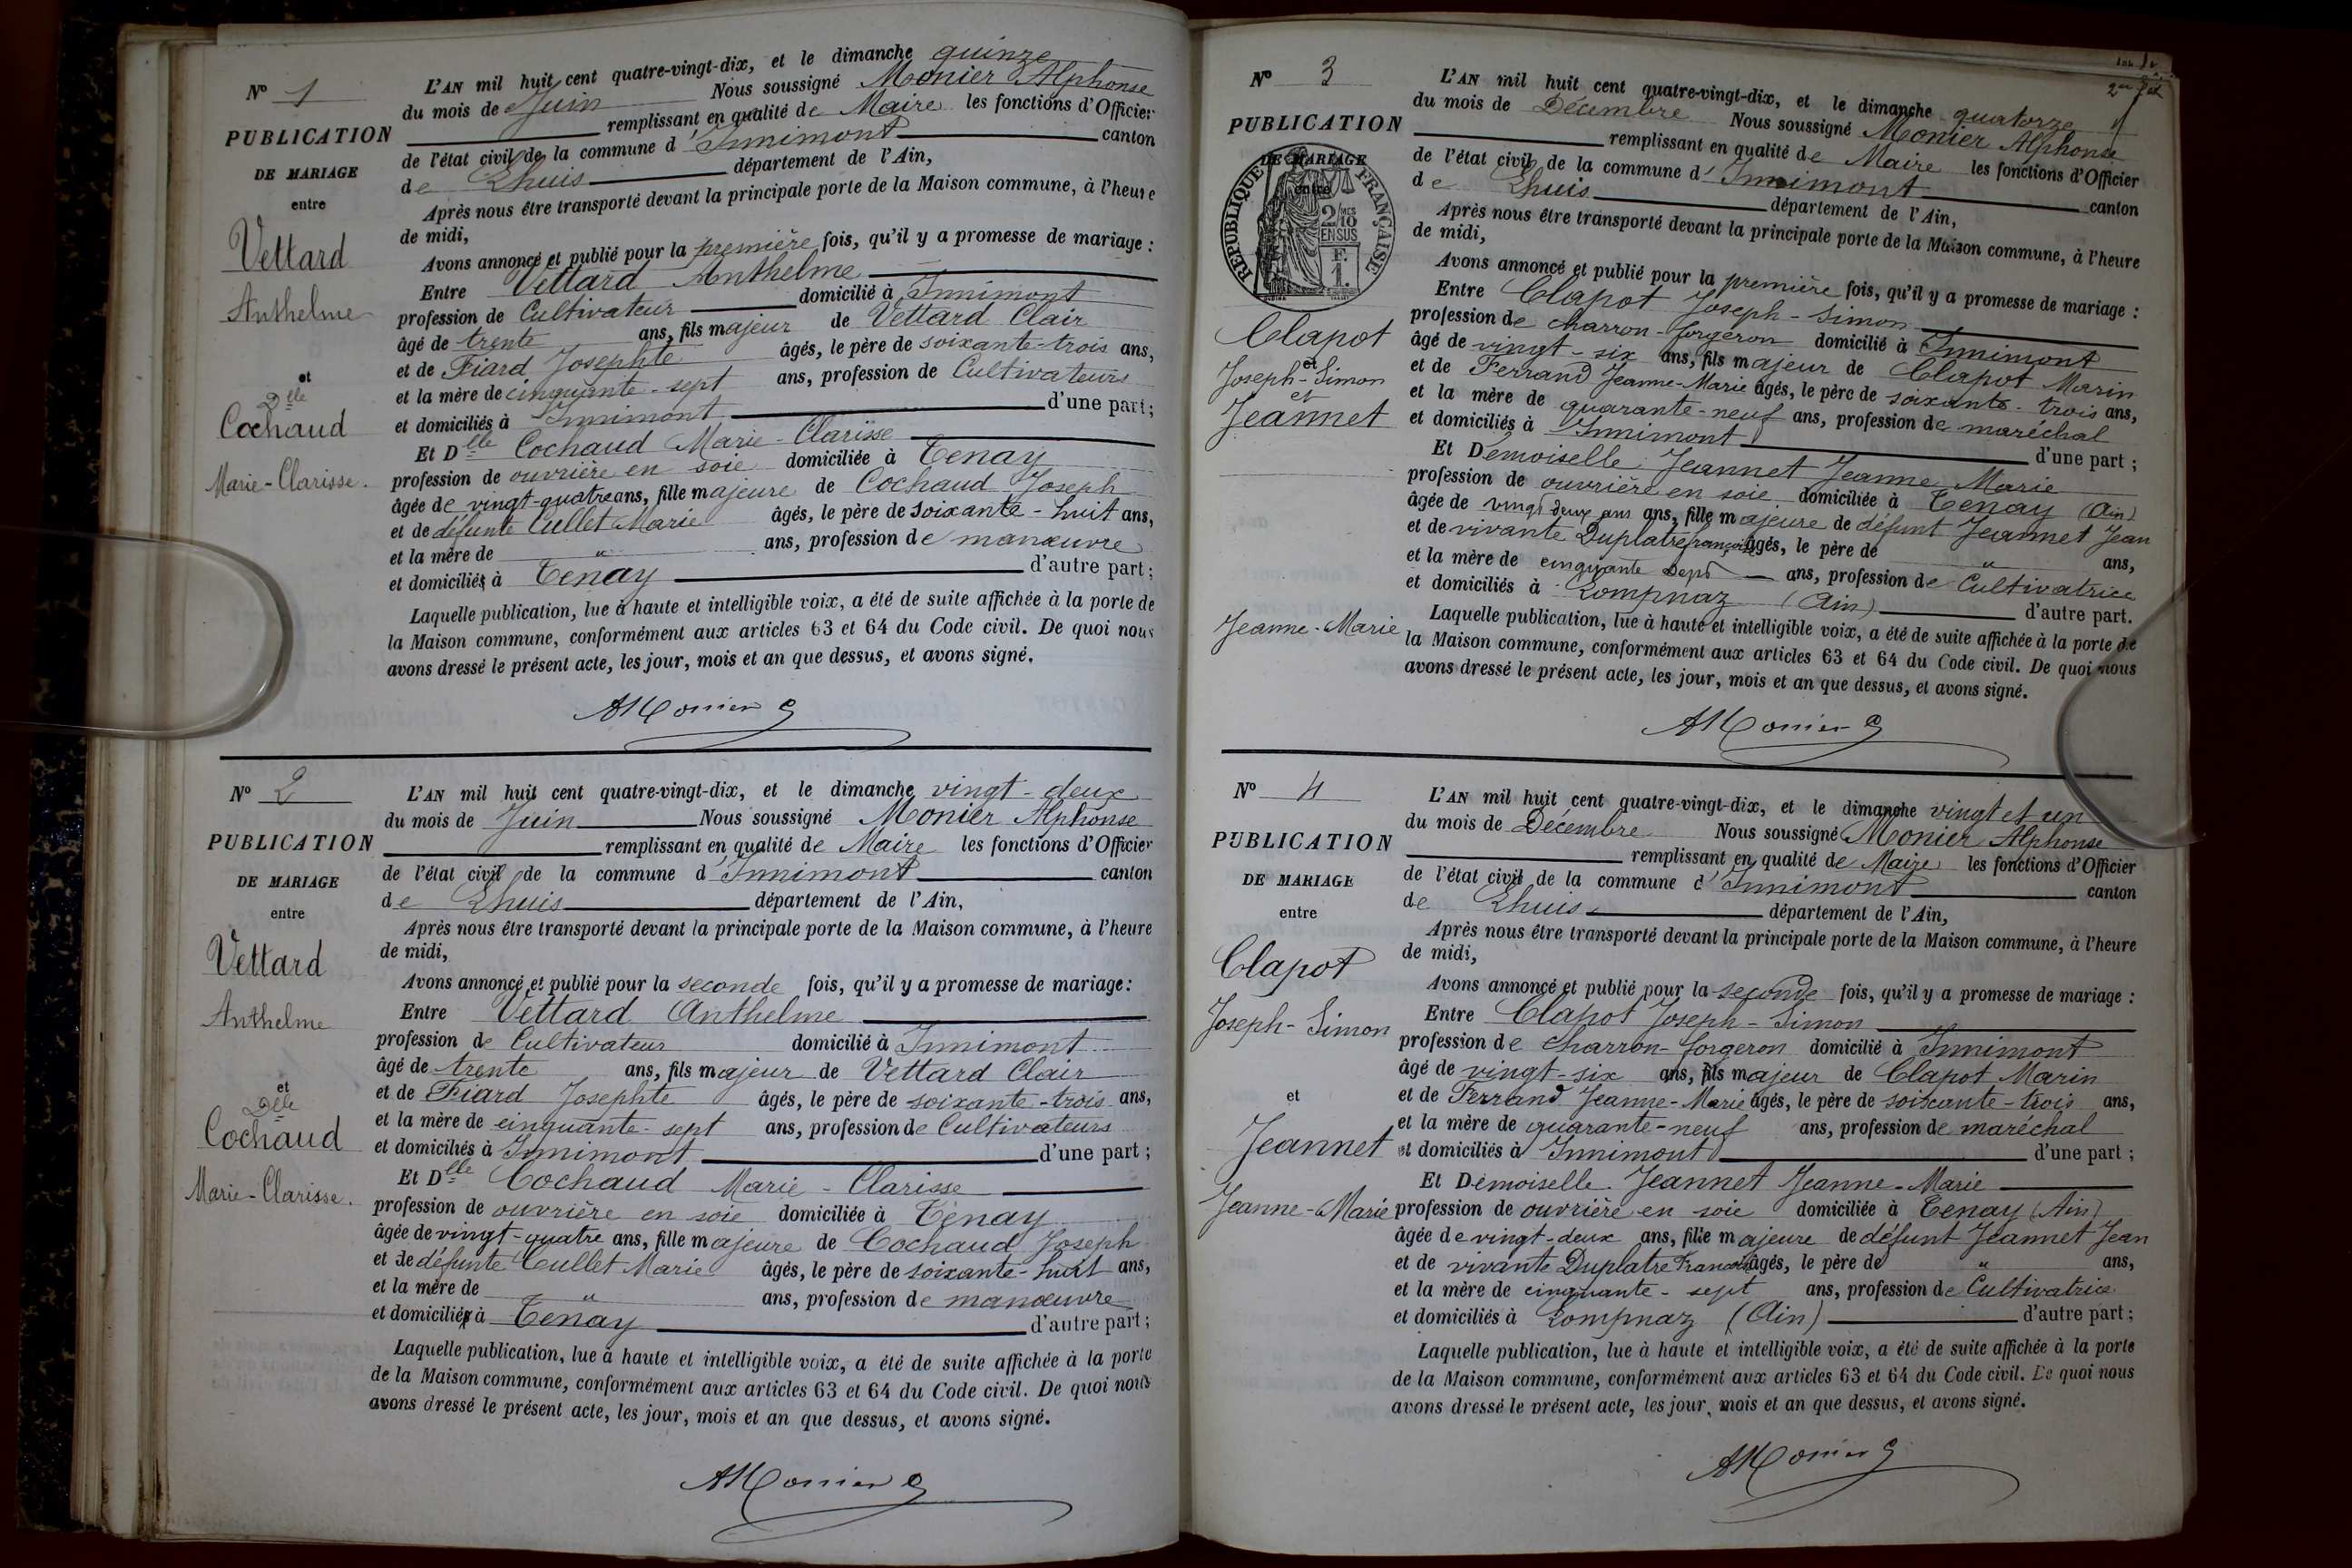 N° 1
PUBLICATION
DE MARIAGE
entre
Vettard
Anthelme
et
Dlle
Cochaud
Marie-Clarisse.
L'AN mil huit cent quatre-vingt-dix, et le dimanche quinze
du mois de Juin Nous soussigné Monier Alphonse
remplissant en qualité de Maire les fonctions d'Officier
de l'état civil de la commune d'Innimont canton
de Lhuis département de l'Ain,
Après nous être transporté devant la principale porte de la Maison commune, à l'heure
de midi,
Avons annoncé et publié pour la première fois, qu'il y a promesse de mariage :
Entre Vettard Anthelme
profession de Cultivateur domicilié à Innimont
âgé de trente ans, fils majeur de Vettard Clair
et de Fiard Josephte âgés, le père de soixante-trois ans,
et la mère de cinquante-sept ans, profession de Cultivateurs
et domiciliés à Innimont d'une part ;
Et Dlle Cochaud Marie-Clarisse
profession de ouvrière en soie domiciliée à Tenay
âgée de vingt-quatre ans, fille majeure de Cochaud Joseph
et de défunte Cullet Marie âgés, le père de soixante-huit ans,
et la mère de " ans, profession de manœuvre
et domiciliés à Tenay d'autre part ;
Laquelle publication, lue à haute et intelligible voix, a été de suite affichée à la porte de
la Maison commune, conformément aux articles 63 et 64 du Code civil. De quoi nous
avons dressé le présent acte, les jour, mois et an que dessus, et avons signé.
AMonier
N° 2
PUBLICATION
DE MARIAGE
entre
Vettard
Anthelme
et
Dlle
Cochaud
Marie-Clarisse.
L'AN mil huit cent quatre-vingt-dix, et le dimanche vingt-deux
du mois de Juin Nous soussigné Monier Alphonse
remplissant en qualité de Maire les fonctions d'Officier
de l'état civil de la commune d'Innimont canton
de Lhuis département de l'Ain,
Après nous être transporté devant la principale porte de la Maison commune, à l'heure
de midi,
Avons annoncé et publié pour la seconde fois, qu'il y a promesse de mariage :
Entre Vettard Anthelme
profession de Cultivateur domicilié à Innimont
âgé de trente ans, fils majeur de Vettard Clair
et de Fiard Josephte âgés, le père de soixante-trois ans,
et la mère de cinquante-sept ans, profession de Cultivateurs
et domiciliés à Innimont d'une part ;
Et Dlle Cochaud Marie-Clarisse
profession de ouvrière en soie domiciliée à Tenay
âgée de vingt-quatre ans, fille majeure de Cochaud Joseph
et de défunte Cullet Marie âgés, le père de soixante-huit ans,
et la mère de " ans, profession de manœuvre
et domiciliés à Tenay d'autre part ;
Laquelle publication, lue à haute et intelligible voix, a été de suite affichée à la porte
de la Maison commune, conformément aux articles 63 et 64 du Code civil. De quoi nous
avons dressé le présent acte, les jour, mois et an que dessus, et avons signé.
AMonier
N° 3
PUBLICATION
DE MARIAGE
entre
RÉPUBLIQUE FRANÇAISE
2/10
EN SUS
F.
1.
Clapot
et
Joseph-Simon
et
Jeannet
Jeanne-Marie
L'AN mil huit cent quatre-vingt-dix, et le dimanche quatorze
du mois de Décembre Nous soussigné Monier Alphonse
remplissant en qualité de Maire les fonctions d'Officier
de l'état civil de la commune d'Innimont canton
de Lhuis département de l'Ain,
Après nous être transporté devant la principale porte de la Maison commune, à l'heure
de midi,
Avons annoncé et publié pour la première fois, qu'il y a promesse de mariage :
Entre Clapot Joseph-Simon
profession de charron-forgeron domicilié à Innimont
âgé de vingt-six ans, fils majeur de Clapot Marin
et de Ferrand Jeanne-Marie âgés, le père de soixante-trois ans,
et la mère de quarante-neuf ans, profession de maréchal
et domiciliés à Innimont d'une part ;
Et Demoiselle Jeannet Jeanne Marie
profession de ouvrière en soie domiciliée à Tenay (Ain)
âgée de vingt deux ans ans, fille majeure de défunt Jeannet Jean
et de vivante Duplatre françoise âgés, le père de " ans,
et la mère de cinquante sept ans, profession de Cultivatrice
et domiciliés à Lompnaz (Ain) d'autre part.
Laquelle publication, lue à haute et intelligible voix, a été de suite affichée à la porte de
la Maison commune, conformément aux articles 63 et 64 du Code civil. De quoi nous
avons dressé le présent acte, les jour, mois et an que dessus, et avons signé.
AMonier
N° 4
PUBLICATION
DE MARIAGE
entre
Clapot
Joseph-Simon
et
Jeannet
Jeanne-Marie
L'AN mil huit cent quatre-vingt-dix, et le dimanche vingt et un
du mois de Décembre Nous soussigné Monier Alphonse
remplissant en qualité de Maire les fonctions d'Officier
de l'état civil de la commune d'Innimont canton
de Lhuis département de l'Ain,
Après nous être transporté devant la principale porte de la Maison commune, à l'heure
de midi,
Avons annoncé et publié pour la seconde fois, qu'il y a promesse de mariage :
Entre Clapot Joseph-Simon
profession de charron-forgeron domicilié à Innimont
âgé de vingt-six ans, fils majeur de Clapot Marin
et de Ferrand Jeanne-Marie âgés, le père de soixante-trois ans,
et la mère de quarante-neuf ans, profession de maréchal
et domiciliés à Innimont d'une part ;
Et Demoiselle Jeannet Jeanne-Marie
profession de ouvrière en soie domiciliée à Tenay (Ain)
âgée de vingt-deux ans, fille majeure de défunt Jeannet Jean
et de vivante Duplatre Françoise âgés, le père de " ans,
et la mère de cinquante-sept ans, profession de Cultivatrice
et domiciliés à Lompnaz (Ain) d'autre part ;
Laquelle publication, lue à haute et intelligible voix, a été de suite affichée à la porte
de la Maison commune, conformément aux articles 63 et 64 du Code civil. De quoi nous
avons dressé le présent acte, les jour, mois et an que dessus, et avons signé.
AMonier